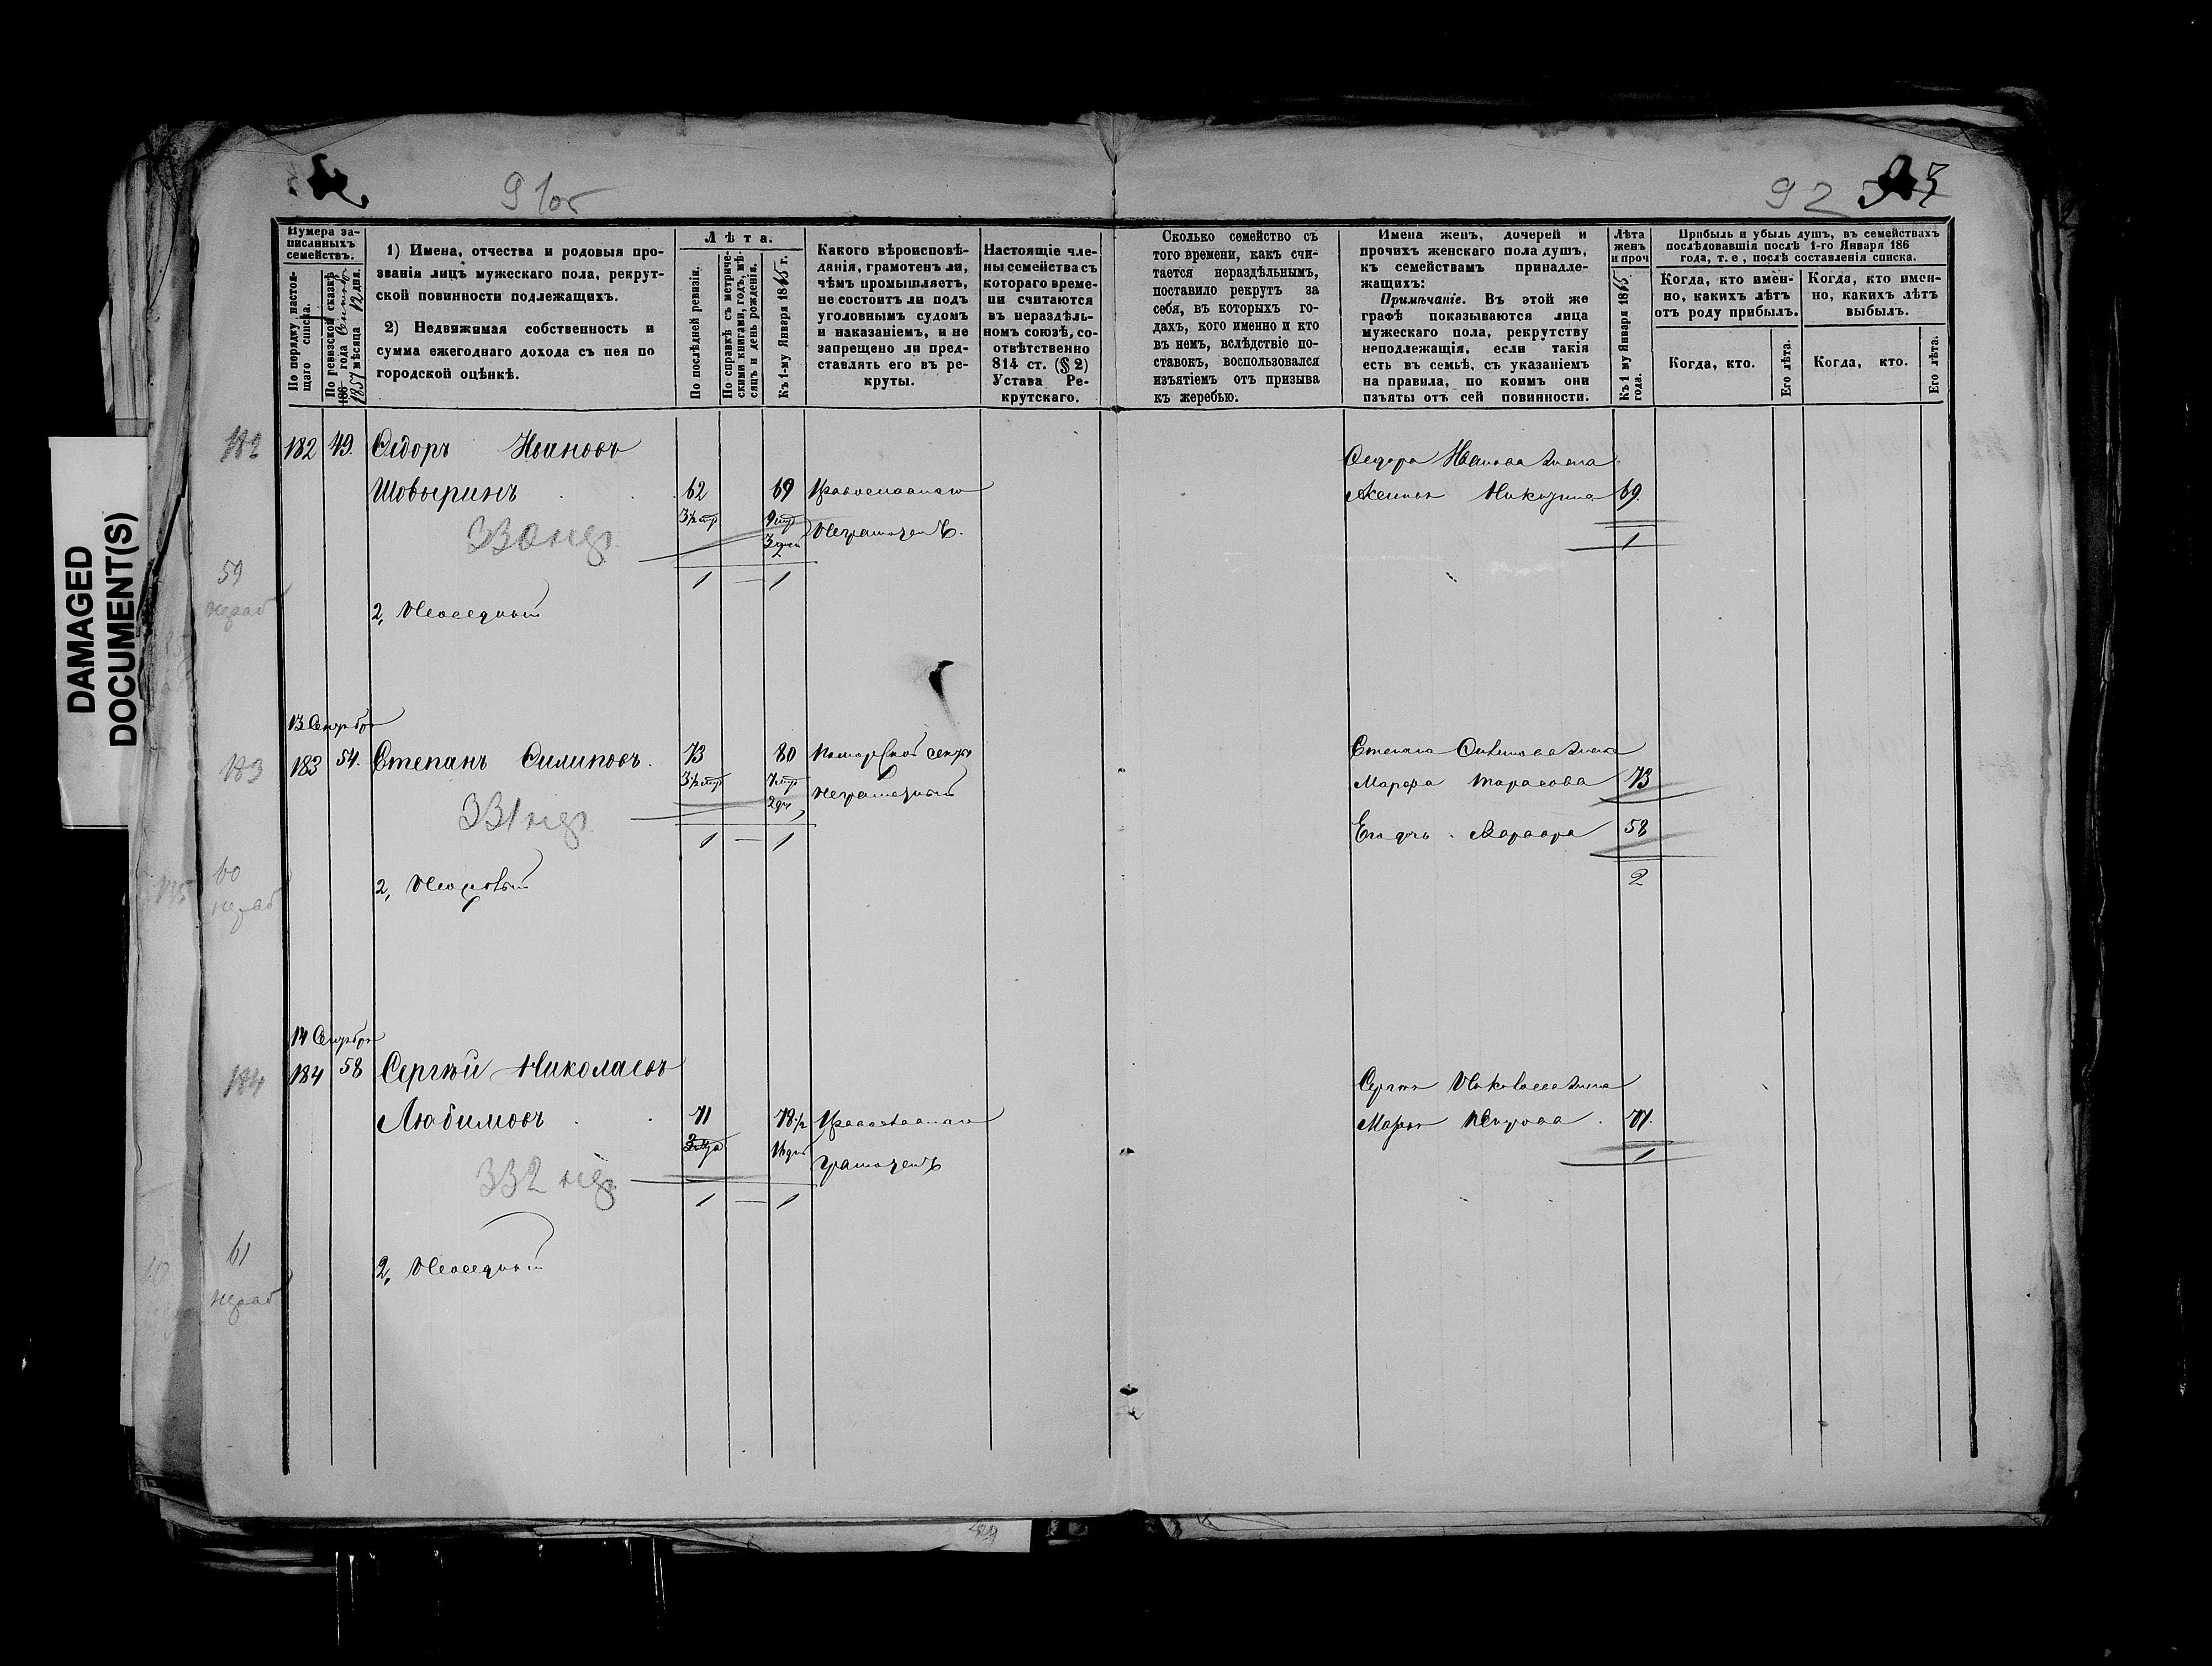 DAMAGED
DOCUMENT(S)
91об
92
Нумера за-
писанныхъ
семействъ.
По порядку настоя-
щаго списка.
По ревизской сказкѣ
186 года
1857 мѣсяца 12 дня.
1) Имена, отчества и родовыя про-
званія лицъ мужескаго пола, рекрут-
ской повинности подлежащихъ.
2) Недвижимая собственность и
сумма ежегоднаго дохода съ нея по
городской оцѣнкѣ.
Лѣта.
По послѣдней ревизіи.
По справкѣ съ метриче-
скими книгами, годъ, мѣ-
сяцъ и день рожденія.
Къ 1-му Января 1865 г.
Какого вѣроисповѣ-
данія, грамотенъ ли,
чѣмъ промышляетъ,
не состоитъ ли подъ
уголовнымъ судомъ
и наказаніемъ, и не
запрещено ли пред-
ставлять его въ ре-
круты.
Настоящіе чле-
ны семейства съ
котораго време-
ни считаются
въ нераздѣль-
номъ союзѣ, со-
отвѣтственно
814 ст. (§ 2)
Устава Ре-
крутскаго.
Сколько семейство съ
того времени, какъ счи-
тается нераздѣльнымъ,
поставило рекрутъ за
себя, въ которыхъ го-
дахъ, кого именно и кто
въ немъ, вслѣдствіе по-
ставокъ, воспользовался
изъятіемъ отъ призыва
къ жеребью.
Имена женъ, дочерей и
прочихъ женскаго пола душъ,
къ семействамъ принадле-
жащихъ:
Примѣчаніе. Въ этой же
графѣ показываются лица
мужескаго пола, рекрутству
неподлежащія, если такія
есть въ семьѣ, съ указаніемъ
на правила, по коимъ они
изъяты отъ сей повинности.
Лѣта
женъ
и проч
Къ 1 му Января 1865
года.
Прибыль и убыль душъ, въ семействахъ
послѣдовавшія послѣ 1-го Января 186
года, т. е, послѣ составленія списка.
Когда, кто имен-
но, какихъ лѣтъ
отъ роду прибылъ.
Когда, кто имен-
но, какихъ лѣтъ
выбылъ.
Когда, кто.
Его лѣта.
Когда, кто.
Его лѣта.
182 182 49. Сидоръ Ивановъ
Сидора Иванова жена
Шовыринъ 62 69 Православнаго
Аксинья Никитина 69.
Неграмотенъ.
330
1 — 1
1
59
2, Неоседлый
13 Сентября
183 183 54. Степанъ Филиповъ. 73 80 Поморской секты
Степана Филипова жена
неграмотный
Марфа Тарасова 73
331
Его дочь Варвара 58
1 — 1
2
60
2, Неоседлый
14 Сентября
184 184 58 Сергѣй Николаевъ
Сергея Николаева жена
Любимовъ 71 78½ Православнаго
Марья Петрова. 77.
грамотенъ
332
1 — 1
1
61
2, Неоседлый